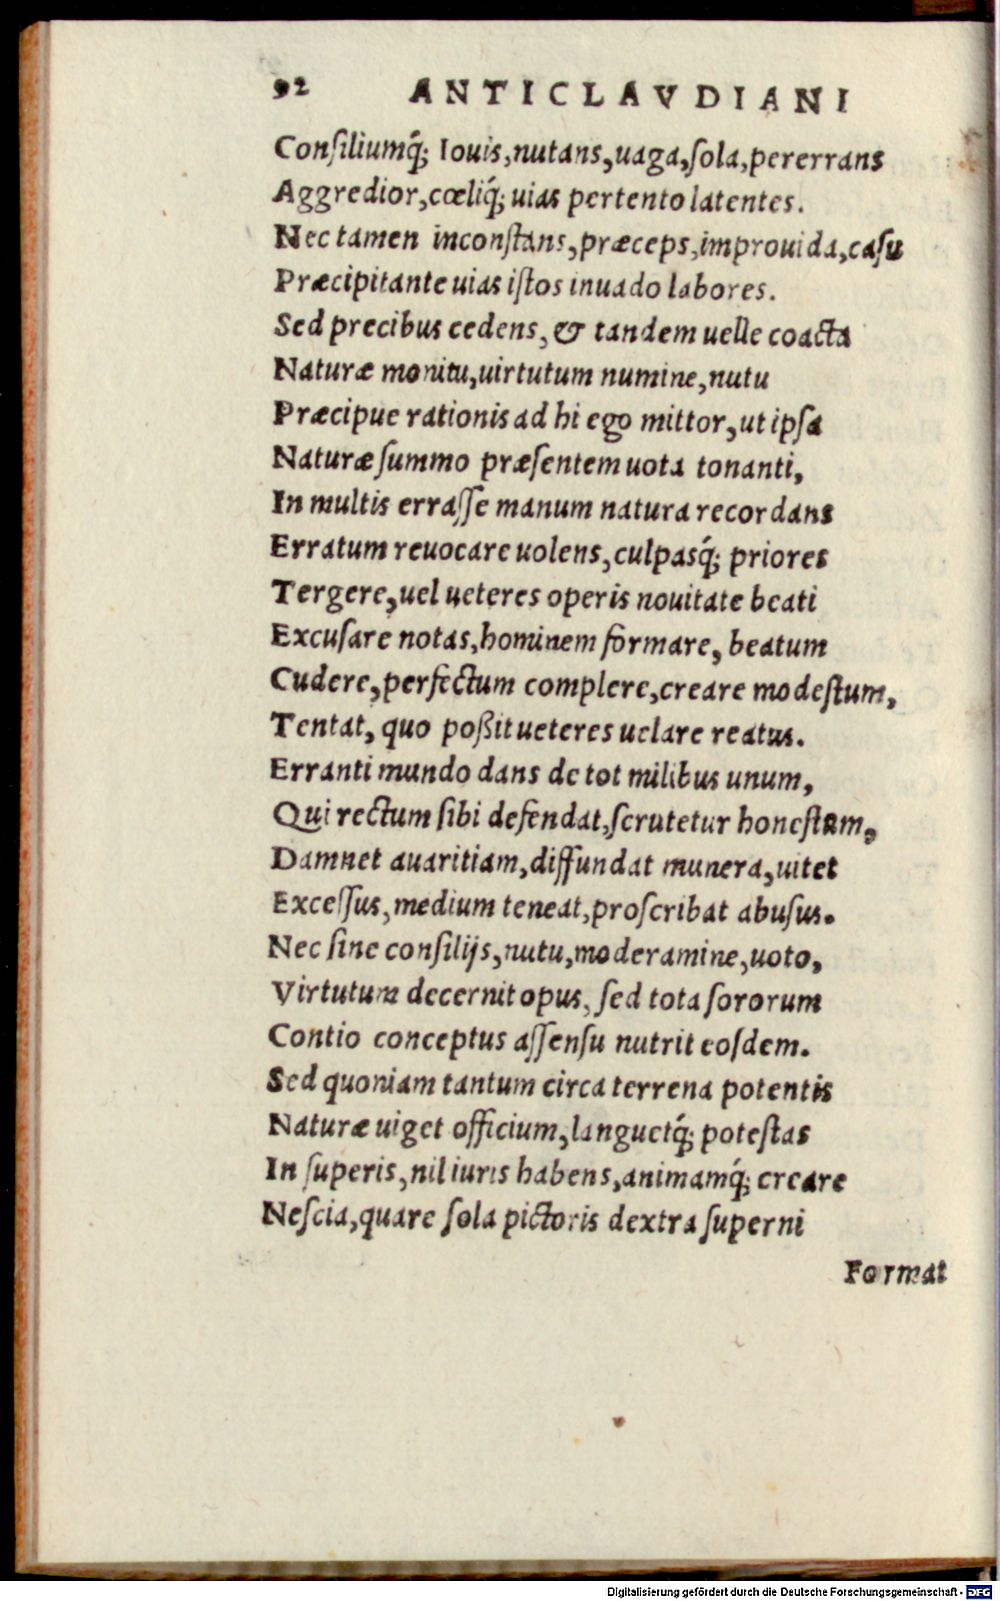 92 ANTICLAVDIANI
Conſiliumq́; Iouis,nutans,uaga,ſola,pererrans
Aggredior,cœliq́; uias pertento latentes.
Nec tamen inconſtans,præceps,improuida,caſu
Præcipitante uias iſtos inuado labores.
Sed precibus cedens, & tandem uelle coacta
Naturæ monitu,uirtutum numine,nutu
Præcipue rationis ad hi ego mittor,ut ipſa
Naturæ ſummo præſentem uota tonanti,
In multis erraſſe manum natura recordans
Erratum reuocare uolens,culpasq́; priores
Tergere,uel ueteres operis nouitate beati
Excuſare notas,hominem formare, beatum
Cudere,perfectum complere,creare modeſtum,
Tentat, quo poßit ueteres uelare reatus.
Erranti mundo dans de tot milibus unum,
Qui rectum ſibi defendat,ſcrutetur honeſtum,
Damnet auaritiam,diffundat munera,uitet
Exceſſus,medium teneat,proſcribat abuſus.
Nec ſine conſilijs,nutu,moderamine,uoto,
Virtutum decernit opus, ſed tota ſororum
Contio conceptus aſſenſu nutrit eoſdem.
Sed quoniam tantum circa terrena potentis
Naturæ uiget officium,languetq́; poteſtas
In ſuperis,nil iuris habens,animamq́; creare
Neſcia,quare ſola pictoris dextra ſuperni
Format
Digitalisierung gefördert durch die Deutsche Forschungsgemeinschaft - DFG